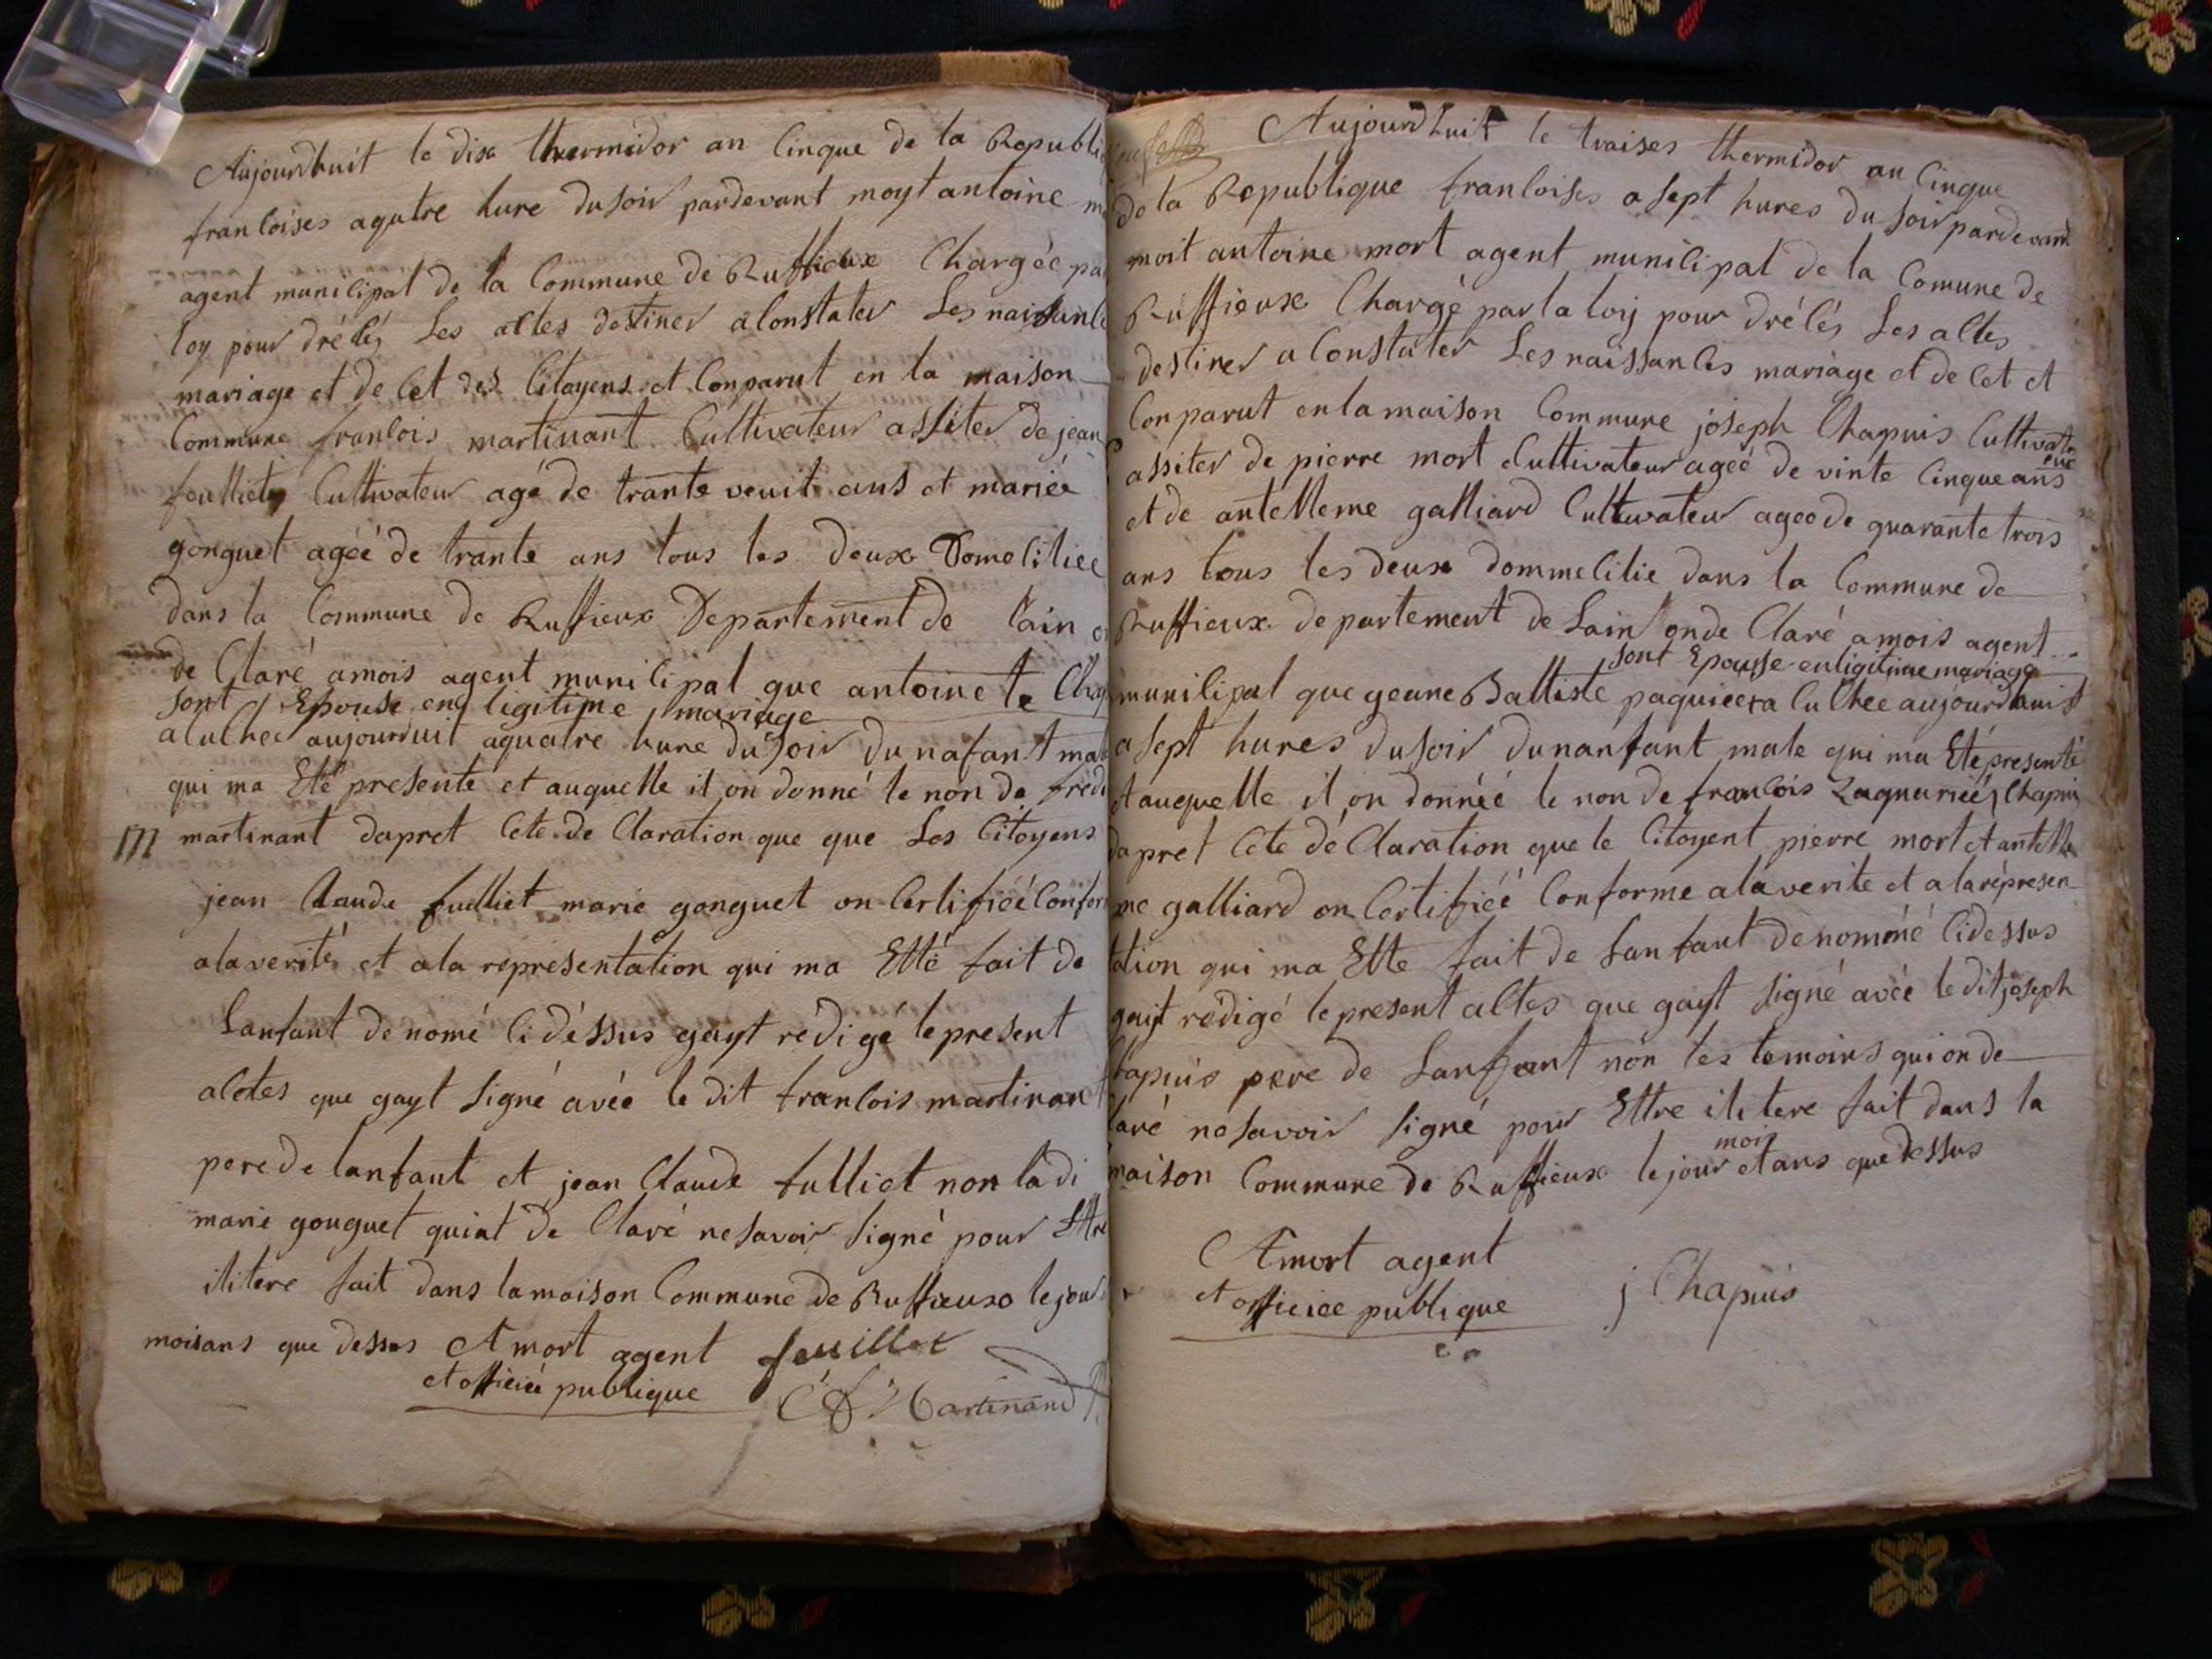 Aujourdhuit le dix thermidor an Cinque de la Republi
francoises aquatre hure du soir pardevant moyt antoine
agent municipal de la Commune de Ruffieux Chargée par
loy pour drécés Les actes destiner aConstater Les naissanc
mariage et de Cet des Citoyens et Conparut en la maison
Commune francois martinant Cultivateur assiter de jean
foulliet Cultivateur agé de trante veuit ans et mariée
gonguet agéé de trante ans tous les deux Domeciliee
dans la Commune de Ruffieux Departement de Lain
de Claré amois agent municipal que antoine te
sont Epouse en ligitime mariage
aCuChee aujourduit aquatre hure du soir dunafant mal
qui ma Eté presente et auquelle il on donné le non de frede
martinant dapret Cete de Claration que que Les Citoyens
jean Claude fulliet marie gonguet on Certifiéé Confor
alaverité et ala representation qui ma Etté fait de
Lanfant denomé Cidéssus gayt rédigé le present
alctes que gayt signé avéc le dit francois martinant
pere de lanfant et jean Claude fulliet non ladi
marie gonguet quiat de Claré nesavoir signé pour Ettre
ilitere fait dans la maison Commune de Ruffieux le jour
moisans que dessus Amort agent feuillet
et officiéé publique Martinand
Aujourdhuit le traises thermidor an Cinque
de la Republique francoises a sept hures du soir pardevant
moit antoine mort agent municipal de la Comune de
Ruffieux Chargé par la loy pour drécés Les actes
destiner a Constater Les naissances mariage et de Cet et
Conparut en la maison Commune joseph Chapuis Cultivateur
assiter de pierre mort Cultivateur ageé de vinte Cinque ans
et de antelleme galliard Cultivateur ageé de quarante trois
ans tous les deux dommecilie dans la Commune de
Ruffieux departement de Lain onde Claré amois agent
sont Epouse enligitime mariage
municipal que geanne Battiste paquieera CuChee aujourdhuit
a sept hures du soir dunanfant male qui ma Eté presenté
et auquelle il on donnéé le non de francois Zaquarieé Chapuis
dapret Cete déClaration que le Citoyent pierre mort et antelle
me galliard on Certifiéé Conforme alaverite et alarépresen
tation qui ma Ette fait de Lanfant denommé Cidessus
gayt redigé le present altes que gayt signé avéé ledit joseph
Chapuis pere de Lanfant non les temoins qui on de
Claré nesavoir signé pour Ettre ilitere fait dans la
moin
maison Commune de Ruffieux le jour et ans que dessus
Amort agent
et officiee publique
j Chapuis